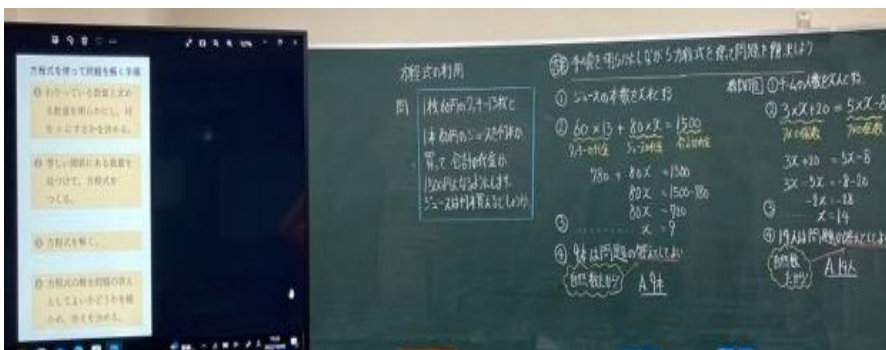 方程式を使って問題を解く手順
① わかっている数量と求め
る数量を明らかにし、何
をxにするかを決める。
② 等しい関係にある数量を
見つけて、方程式を
つくる。
③ 方程式を解く。
④ 方程式の解を問題の答え
としてよいかどうかを確
かめ、答えを決める。
方程式の利用
問
1枚60円のクッキー13枚と
1本80円のジュースを何本か
買って合計の代金が
1500円になるようにします。
ジュースは何本買えるでしょうか。
手順を明らかにしながら方程式を使って問題を解決しよう
① ジュースの本数をx本とする
② 60×13 + 80×x = 1500
クッキーの代金 ジュースの代金 合計の代金
780 + 80x = 1500
80x = 1500-780
80x = 720
③ x = 9
④ 9本は問題の答えとしてよい
自然数だから
A 9本
① チームの人数をx人とする
② 3×x+20 = 5×x-8
3x+20 = 5x-8
3x-5x = -8-20
-2x = -28
③ x = 14
④ 14人は問題の答えとしてよい
自然数だから
A 14人